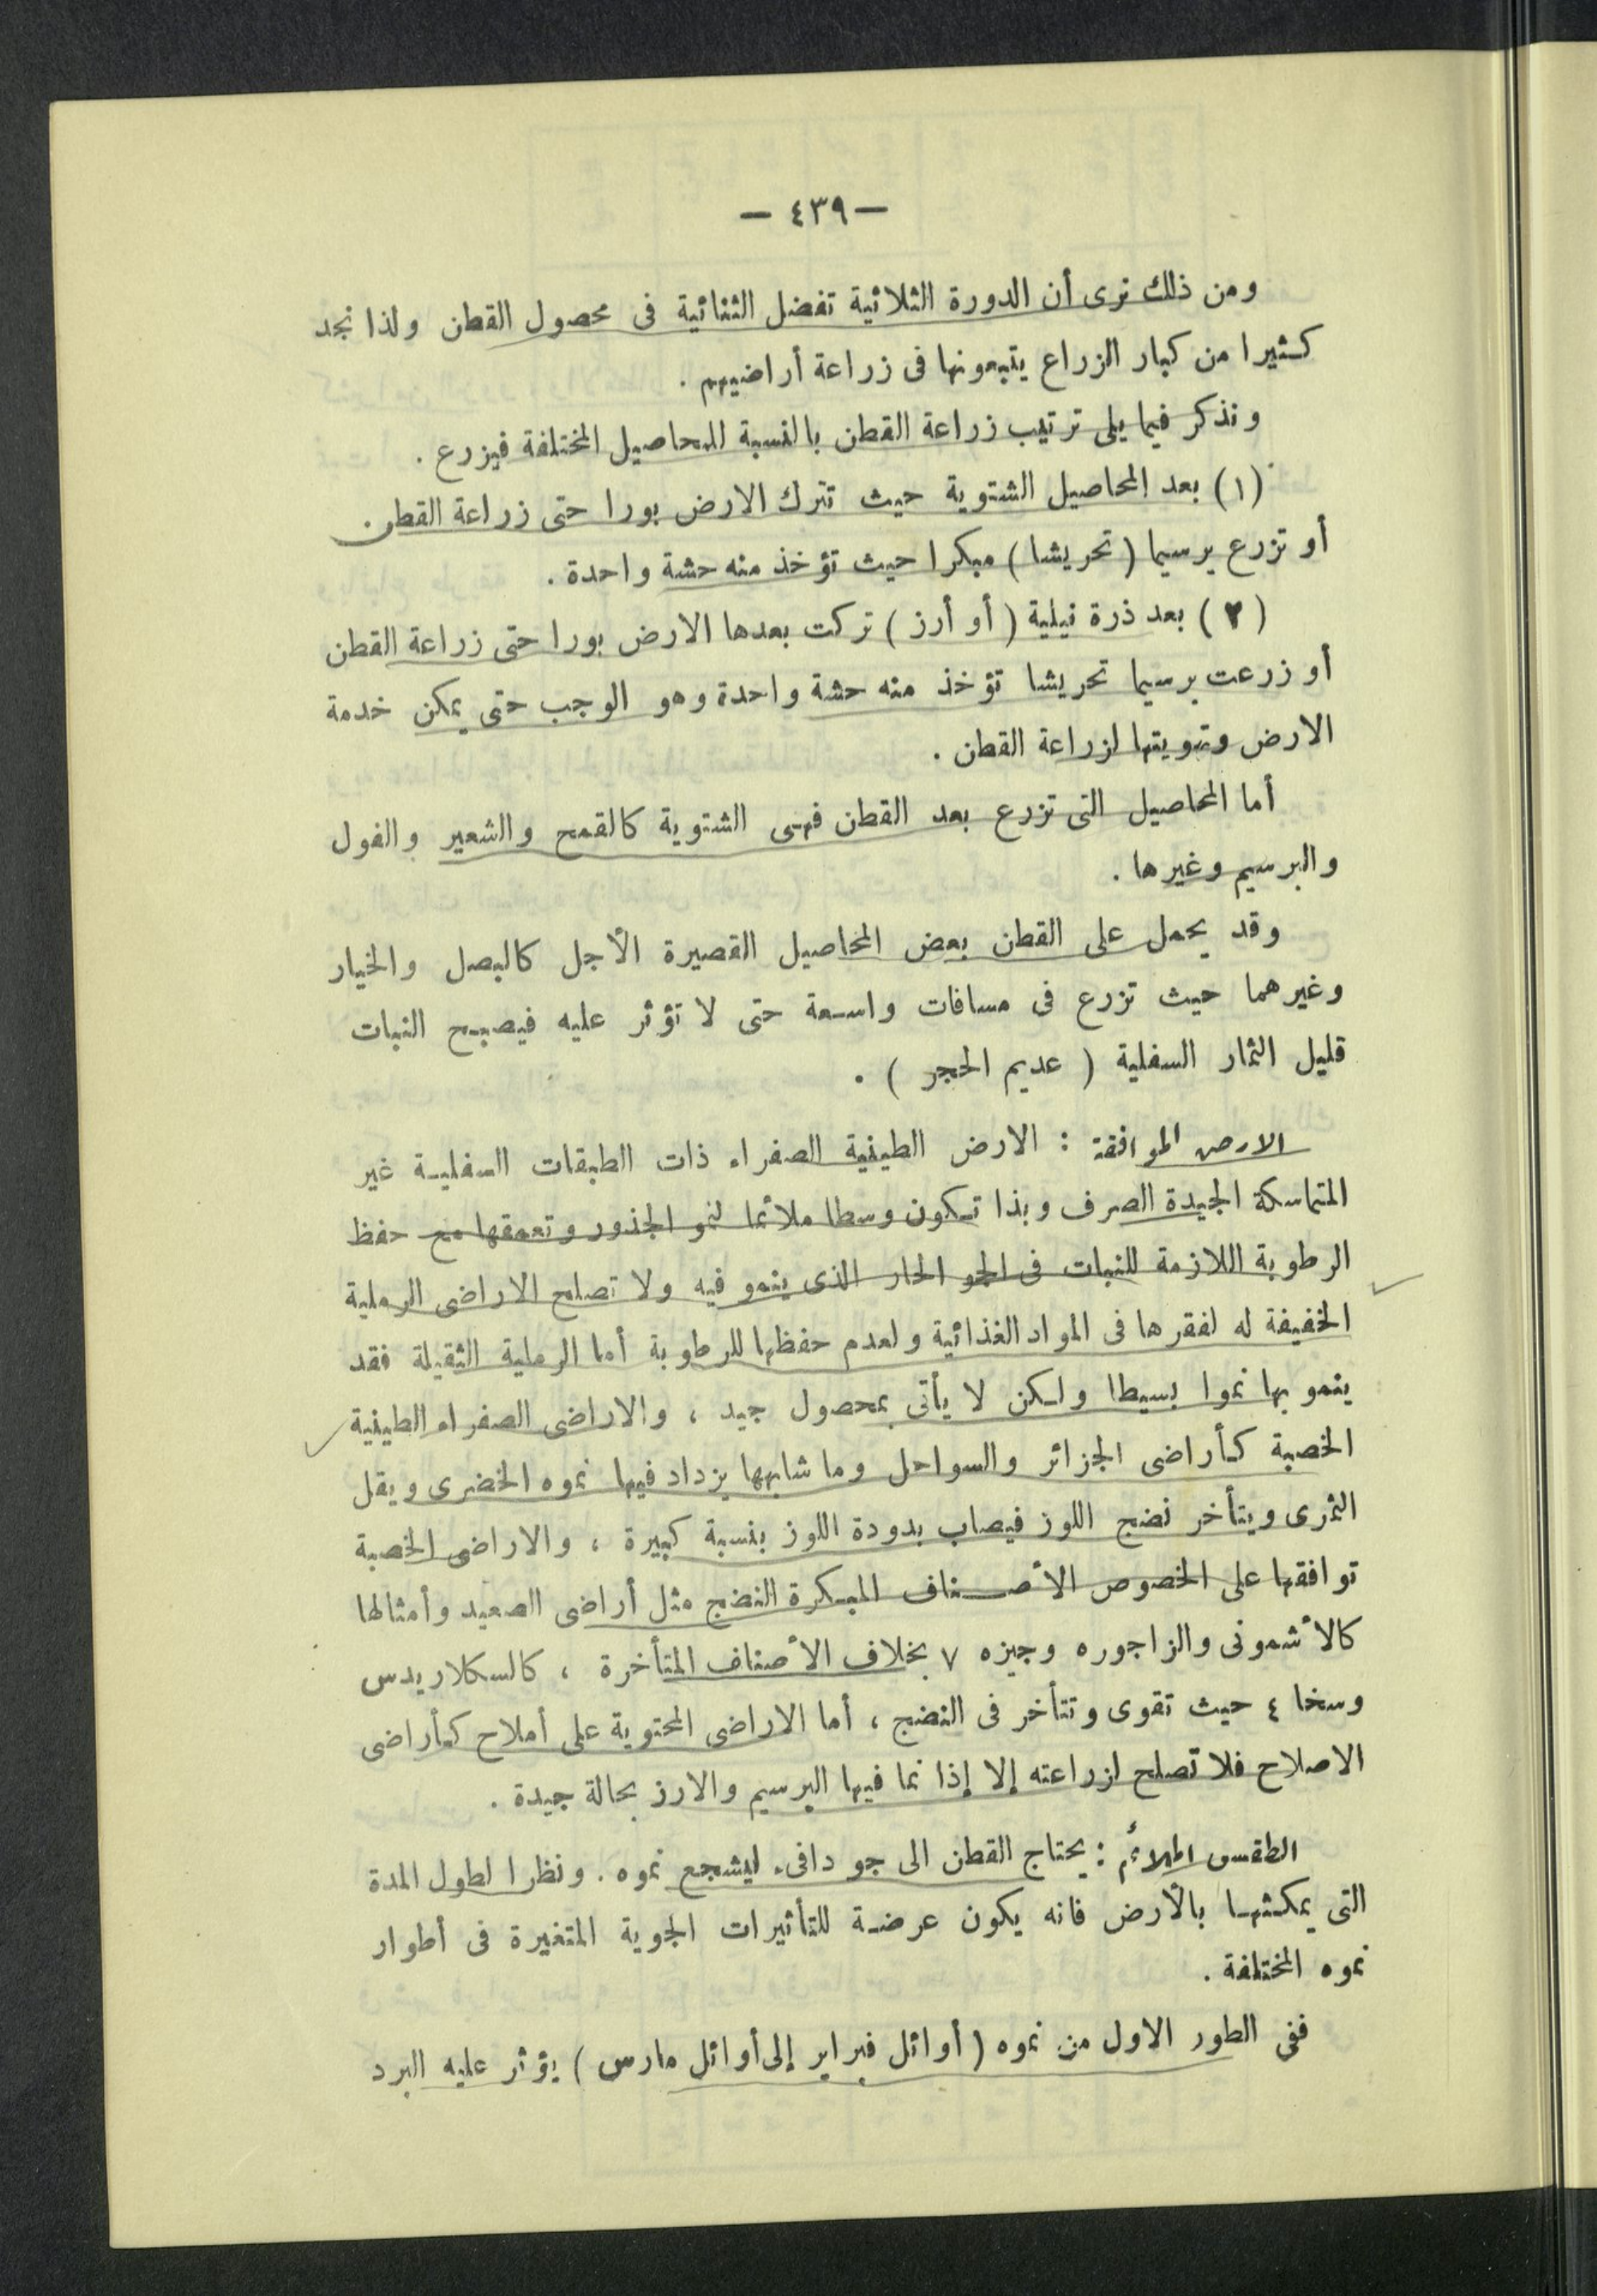 — ٤٣٩ —
ومن ذلك نرى أن الدورة الثلاثية تفضل الثنائية فى محصول القطن ولذا نجد
كثيرا من كبار الزراع يتبعونها فى زراعة أراضيهم .
ونذكر فيما يلى ترتيب زراعة القطن بالنسبة للمحاصيل المختلفة فيزرع .
(١) بعد المحاصيل الشتوية حيث تترك الارض بورا حتى زراعة القطن .
أو تزرع برسيما (تحريشا) مبكرا حيث تؤخذ منه حشة واحدة .
(٢) بعد ذرة نيلية (أو أرز) تركت بعدها الارض بورا حتى زراعة القطن
أو زرعت برسيما تحريشا تؤخذ منه حشة واحدة وهو الوجب حتى يمكن خدمة
الارض وتهويتها لزراعة القطن .
أما المحاصيل التى تزرع بعد القطن فهى الشتوية كالقمح والشعير والفول
والبرسيم وغيرها .
وقد يحمل على القطن بعض المحاصيل القصيرة الأجل كالبصل والخيار
وغيرهما حيث تزرع فى مسافات واسعة حتى لا تؤثر عليه فيصبح النبات
قليل الثمار السفلية ( عديم الحجر ) .
الارض الموافقة : الارض الطينية الصفراء ذات الطبقات السفلية غير
المتماسكة الجيدة الصرف وبذا تكون وسطا ملائما لنمو الجذور وتعمقها مع حفظ
الرطوبة اللازمة للنبات فى الجو الحار الذى ينمو فيه ولا تصلح الاراضى الرملية
الخفيفة له لفقرها فى المواد الغذائية ولعدم حفظها للرطوبة أما الرملية الثقيلة فقد
ينمو بها نموا بسيطا ولكن لا يأتى بمحصول جيد ، والاراضى الصفراء الطينية
الخصبة كأراضى الجزائر والسواحل وما شابهها يزداد فيها نموه الخضرى ويقل
الثمرى ويتأخر نضج اللوز فيصاب بدودة اللوز بنسبة كبيرة ، والاراضى الخصبة
توافقها على الخصوص الأصناف المبكرة النضج مثل أراضى الصعيد وأمثالها
كالأشمونى والزاجوره وجيزه ٧ بخلاف الأصناف المتأخرة ، كالسكلاريدس
وسخا ٤ حيث تقوى وتتأخر فى النضج ، أما الاراضى المحتوية على أملاح كأراضى
الاصلاح فلا تصلح لزراعته إلا إذا نما فيها البرسيم والارز بحالة جيدة .
الطقس الملائم : يحتاج القطن الى جو دافىء ليشجع نموه . ونظرا لطول المدة
التى يمكثها بالأرض فانه يكون عرضة للتأثيرات الجوية المتغيرة فى أطوار
نموه المختلفة .
ففى الطور الاول من نموه (أوائل فبراير إلى أوائل مارس) يؤثر عليه البرد